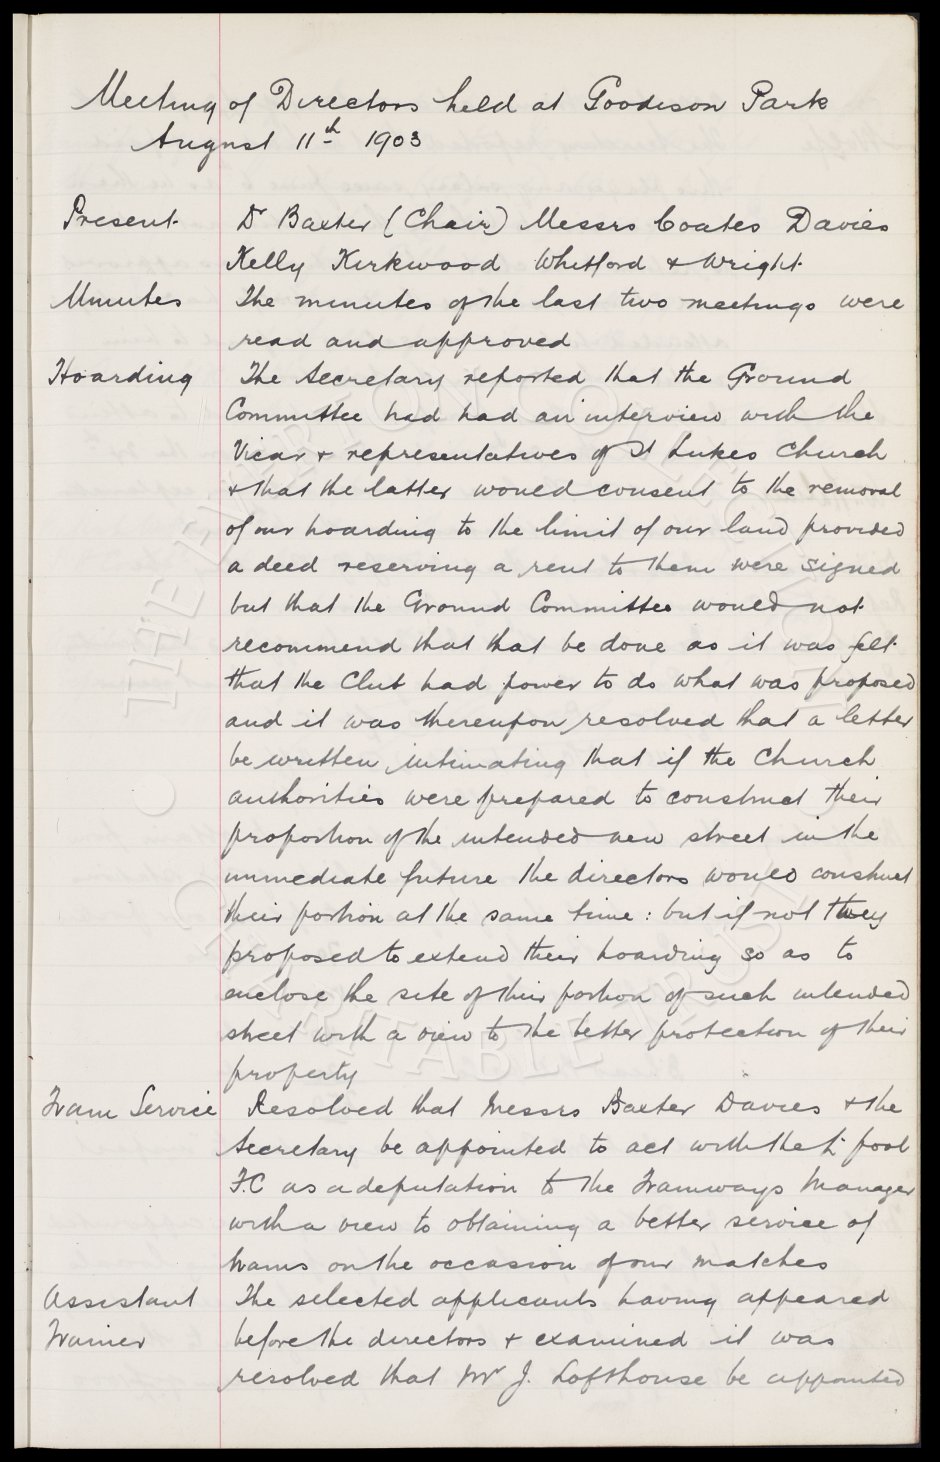 Meeting of Directors held at Goodison Park
August 11th 1903
Present Dr Baxter (Chair) Messrs Coates Davies
Kelly Kirkwood Whitford & Wright
Minutes The minutes of the last two meetings were
read and approved
Hoarding The Secretary reported that the Ground
Committee had had an interview with the
Vicar & representatives of St Lukes Church
& that the latter would consent to the removal
of our hoarding to the limit of our land provided
a deed reserving a rent to them were signed
but that the Ground Committee would not
recommend that that be done as it was felt
that the Club had power to do what was proposed
and it was thereupon resolved that a letter
be written intimating that if the Church
authorities were prepared to construct their
proportion of the intended new street in the
immediate future the directors would construct
their portion at the same time: but if not they
proposed to extend their hoarding so as to
enclose the site of their portion of such intended
street with a view to the better protection of their
property
Tram Service Resolved that Messrs Baxter Davies & the
Secretary be appointed to act with the L'pool
F.C as a deputation to the Tramways Manager
with a view to obtaining a better service of
trams on the occasion of our matches
Assistant The selected applicants having appeared
Trainer before the directors & examined it was
resolved that Mr J. Lofthouse be appointed
THE EVERTON COLLECTION
CHARITABLE TRUST